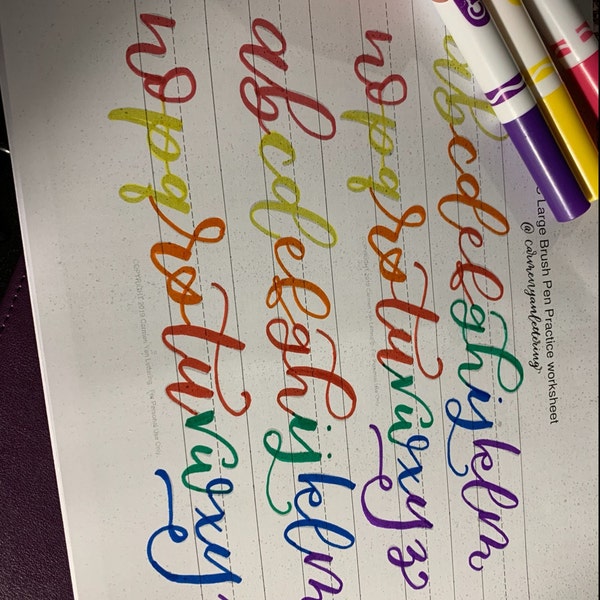 Large Brush Pen Practice worksheet
@ carmenyanlettering
abcdefghijklm
nopqrstuvwxyz
abcdefghijklm
nopqrstuvwxy
COPYRIGHT 2019 Carmen Yan Lettering. For Personal Use Only